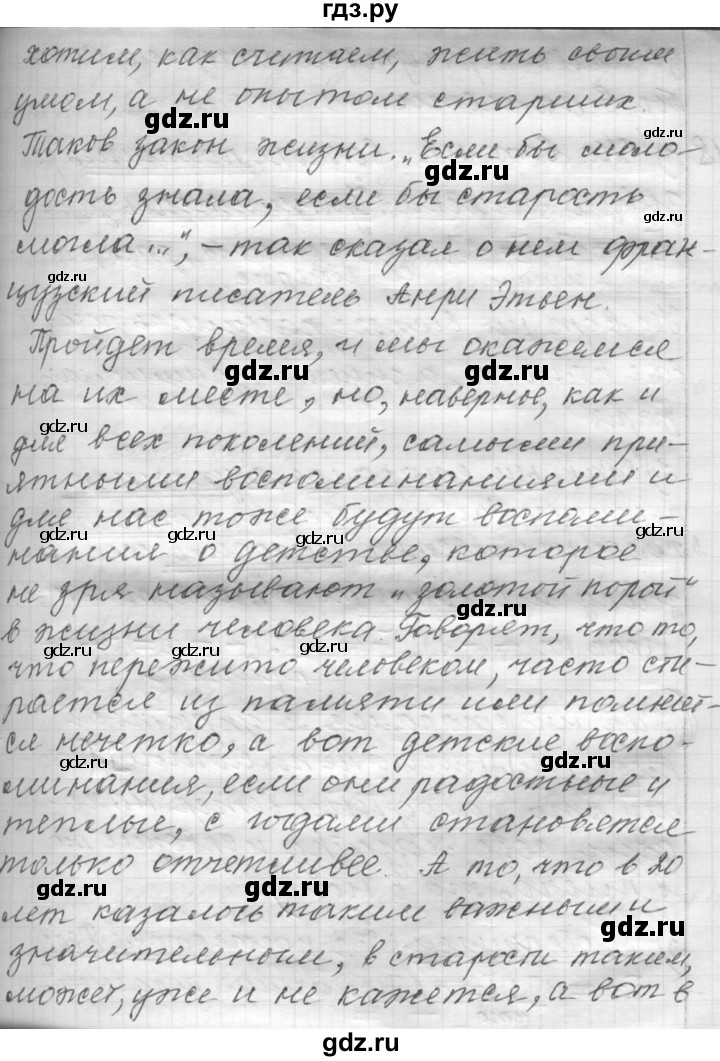 гдз.ру
хотим, как считаем, жить своим
умом, а не опытом старших.
Таков закон жизни. „Если бы моло-
дость знала, если бы старость
могла...", – так сказал о нем фран-
цузский писатель Анри Этьен.
Пройдет время, и мы окажемся
на их месте, но, наверное, как и
для всех поколений, самыми при-
ятными воспоминаниями и
для нас тоже будут воспоми-
нания о детстве, которое
не зря называют „золотой порой"
в жизни человека. Говорят, что то,
что пережито человеком, часто сти-
рается из памяти или помнит-
ся нечетко, а вот детские воспо-
минания, если они радостные и
теплые, с годами становятся
только отчетливее. А то, что в 20
лет казалось таким важным и
значительным, в старости таким,
может, уже и не кажется, а вот в
gdz.ru